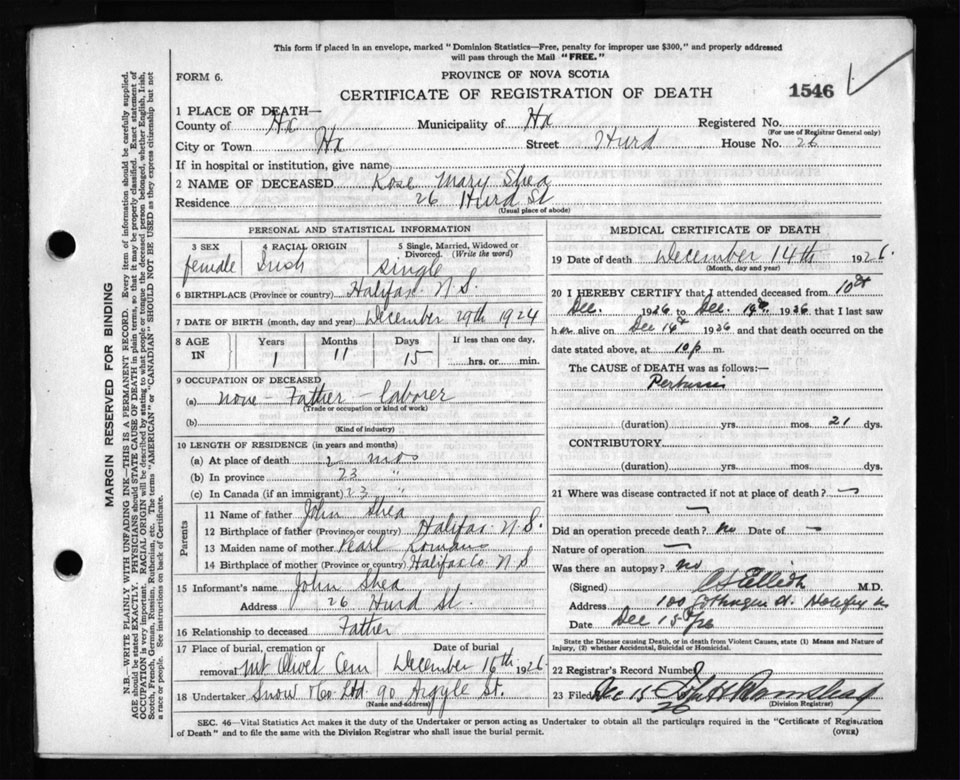 This form if placed in an envelope, marked "Dominion Statistics—Free, penalty for improper use $300," and properly addressed
will pass through the Mail "FREE."
FORM 6.
PROVINCE OF NOVA SCOTIA
CERTIFICATE OF REGISTRATION OF DEATH
1546
1 PLACE OF DEATH—
County of Hx Municipality of Hx Registered No.
(For use of Registrar General only)
City or Town Hx Street Hurd House No. 26
If in hospital or institution, give name
2 NAME OF DECEASED Rose Mary Shea
Residence 26 Hurd St
(Usual place of abode)
PERSONAL AND STATISTICAL INFORMATION
3 SEX female
4 RACIAL ORIGIN Irish
5 Single, Married, Widowed or Divorced. (Write the word) single
6 BIRTHPLACE (Province or country) Halifax N.S.
7 DATE OF BIRTH (month, day and year) December 29th 1924
8 AGE IN Years 1 Months 11 Days 15 If less than one day, hrs. or min.
9 OCCUPATION OF DECEASED
(a) none - Father - laborer
(Trade or occupation or kind of work)
(b)
(Kind of industry)
10 LENGTH OF RESIDENCE (in years and months)
(a) At place of death 2 mos
(b) In province 23 "
(c) In Canada (if an immigrant) 23 "
Parents
11 Name of father John Shea
12 Birthplace of father (Province or country) Halifax N.S.
13 Maiden name of mother Pearl Romans
14 Birthplace of mother (Province or country) Halifax Co N S
15 Informant's name John Shea
Address 26 Hurd St.
16 Relationship to deceased Father
17 Place of burial, cremation or removal Mt Olivet Cem
Date of burial December 16th 1926
18 Undertaker Snow & Co. Ltd. 90 Argyle St.
(Name and address)
MEDICAL CERTIFICATE OF DEATH
19 Date of death December 14th 1926.
(Month, day and year)
20 I HEREBY CERTIFY that I attended deceased from 10th
Dec. 1926 to Dec. 14th 1926 that I last saw
h alive on Dec 1926 and that death occurred on the
date stated above, at 10 p m.
The CAUSE of DEATH was as follows:—
Pertussis
(duration) yrs. mos. 21 dys.
CONTRIBUTORY
(duration) yrs. mos. dys.
21 Where was disease contracted if not at place of death? —
—
Did an operation precede death? no Date of —
Nature of operation —
Was there an autopsy? no
(Signed) M.D.
Address 100
Date Dec 15th/26
State the Disease causing Death, or in death from Violent Causes, state (1) Means and Nature of
Injury, (2) whether Accidental, Suicidal or Homicidal.
22 Registrar's Record Number
23 Filed Dec 15 26
(Division Registrar)
SEC. 46—Vital Statistics Act makes it the duty of the Undertaker or person acting as Undertaker to obtain all the particulars required in the "Certificate of Registration
of Death" and to file the same with the Division Registrar who shall issue the burial permit.
(OVER)
MARGIN RESERVED FOR BINDING
N.B.—WRITE PLAINLY WITH UNFADING INK—THIS IS A PERMANENT RECORD. Every item of information should be carefully supplied.
AGE should be stated EXACTLY. PHYSICIANS should STATE CAUSE OF DEATH in plain terms, so that it may be properly classified. Exact statement of
OCCUPATION is very important. RACIAL ORIGIN will be described by stating to what people or tongue the deceased person belonged, whether English, Irish,
Scotch, French, German, Russian, Ruthenian, etc. The terms "AMERICAN" or "CANADIAN" SHOULD NOT BE USED as they express citizenship but not
a race or people. See instructions on back of Certificate.